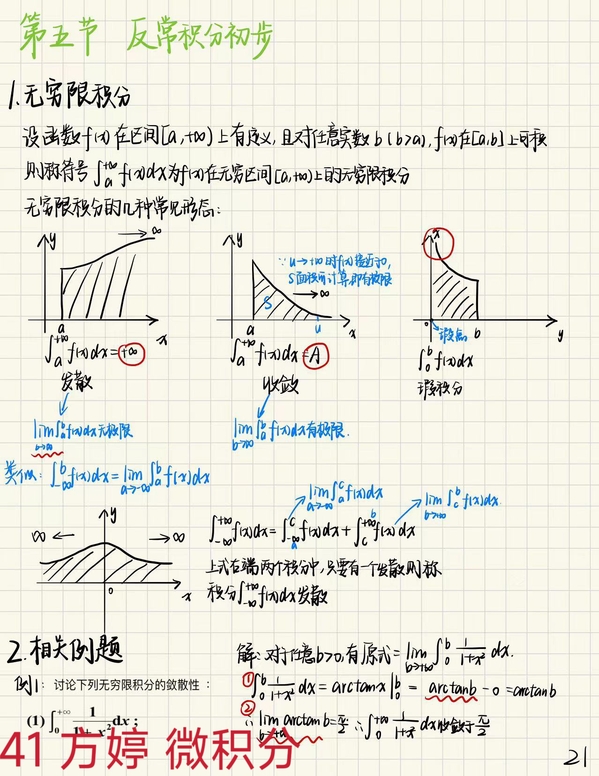 第五节 反常积分初步
1.无穷限积分
设函数f(x)在区间[a,+∞)上有定义,且对任意实数b(b>a),f(x)在[a,b]上可积
则称符号∫_a^{+∞} f(x)dx为f(x)在无穷区间[a,+∞)上的无穷限积分
无穷限积分的几种常见形态:
y → ∞
a x
∫_a^{+∞} f(x)dx=+∞
发散
lim_{b→+∞}∫_a^b f(x)dx无极限
y
∵u→+∞时f(x)接近于0,
S面积可计算,即有极限
S → ∞
a u x
∫_a^{+∞} f(x)dx=A
收敛
lim_{b→+∞}∫_a^b f(x)dx有极限.
x
o 瑕点 b y
∫_0^b f(x)dx
瑕积分
类似:∫_{-∞}^b f(x)dx=lim_{a→-∞}∫_a^b f(x)dx
y
∞ ← → ∞
o x
lim_{a→-∞}∫_a^c f(x)dx lim_{b→+∞}∫_c^b f(x)dx
∫_{-∞}^{+∞} f(x)dx=∫_{-∞}^c f(x)dx+∫_c^{+∞} f(x)dx
a b
上式右端两个积分中,只要有一个发散则称
积分∫_{-∞}^{+∞} f(x)dx发散
2.相关例题
例1:讨论下列无穷限积分的敛散性:
(1) ∫_0^{+∞} 1/(1+x²)dx;
解:对于任意b>0,有原式=lim_{b→+∞}∫_0^b 1/(1+x²) dx.
① ∫_0^b 1/(1+x²) dx = arctanx|_0^b = arctanb - 0 = arctanb
② ∵ lim_{b→+∞} arctanb=π/2 ∴∫_0^{+∞} 1/(1+x²) dx收敛于π/2
41 方婷 微积分
21